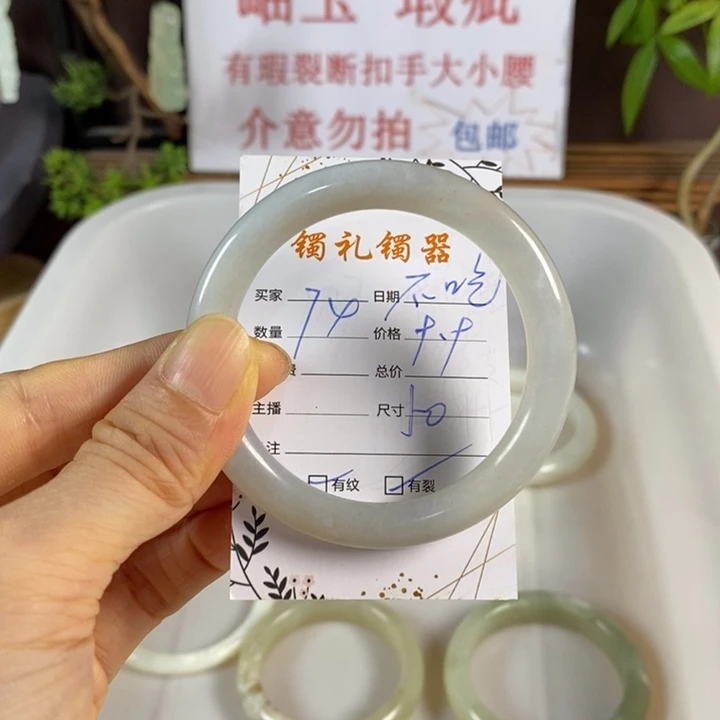 岫玉 瑕疵
有瑕裂断扣手大小腰
介意勿拍 包邮
镯礼镯器
买家 74 日期 不吃
数量 价格
费 总价
主播 尺寸 50
注
有纹 有裂